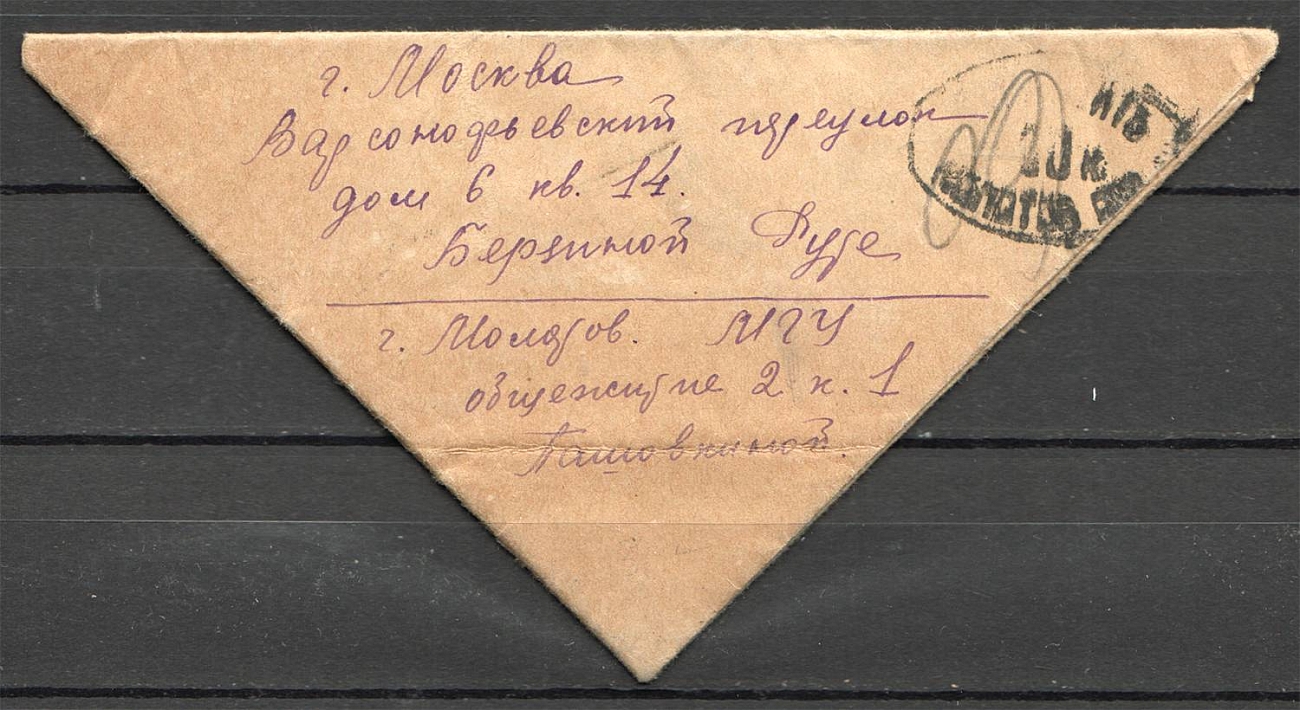 г. Москва
Варсонофьевский переулок
дом 6 кв. 14.
Берзиной Рут
г. Молотов. МГУ
общежитие 2 к. 1
Пашовкиной.
10 к.
МОЛОТОВ